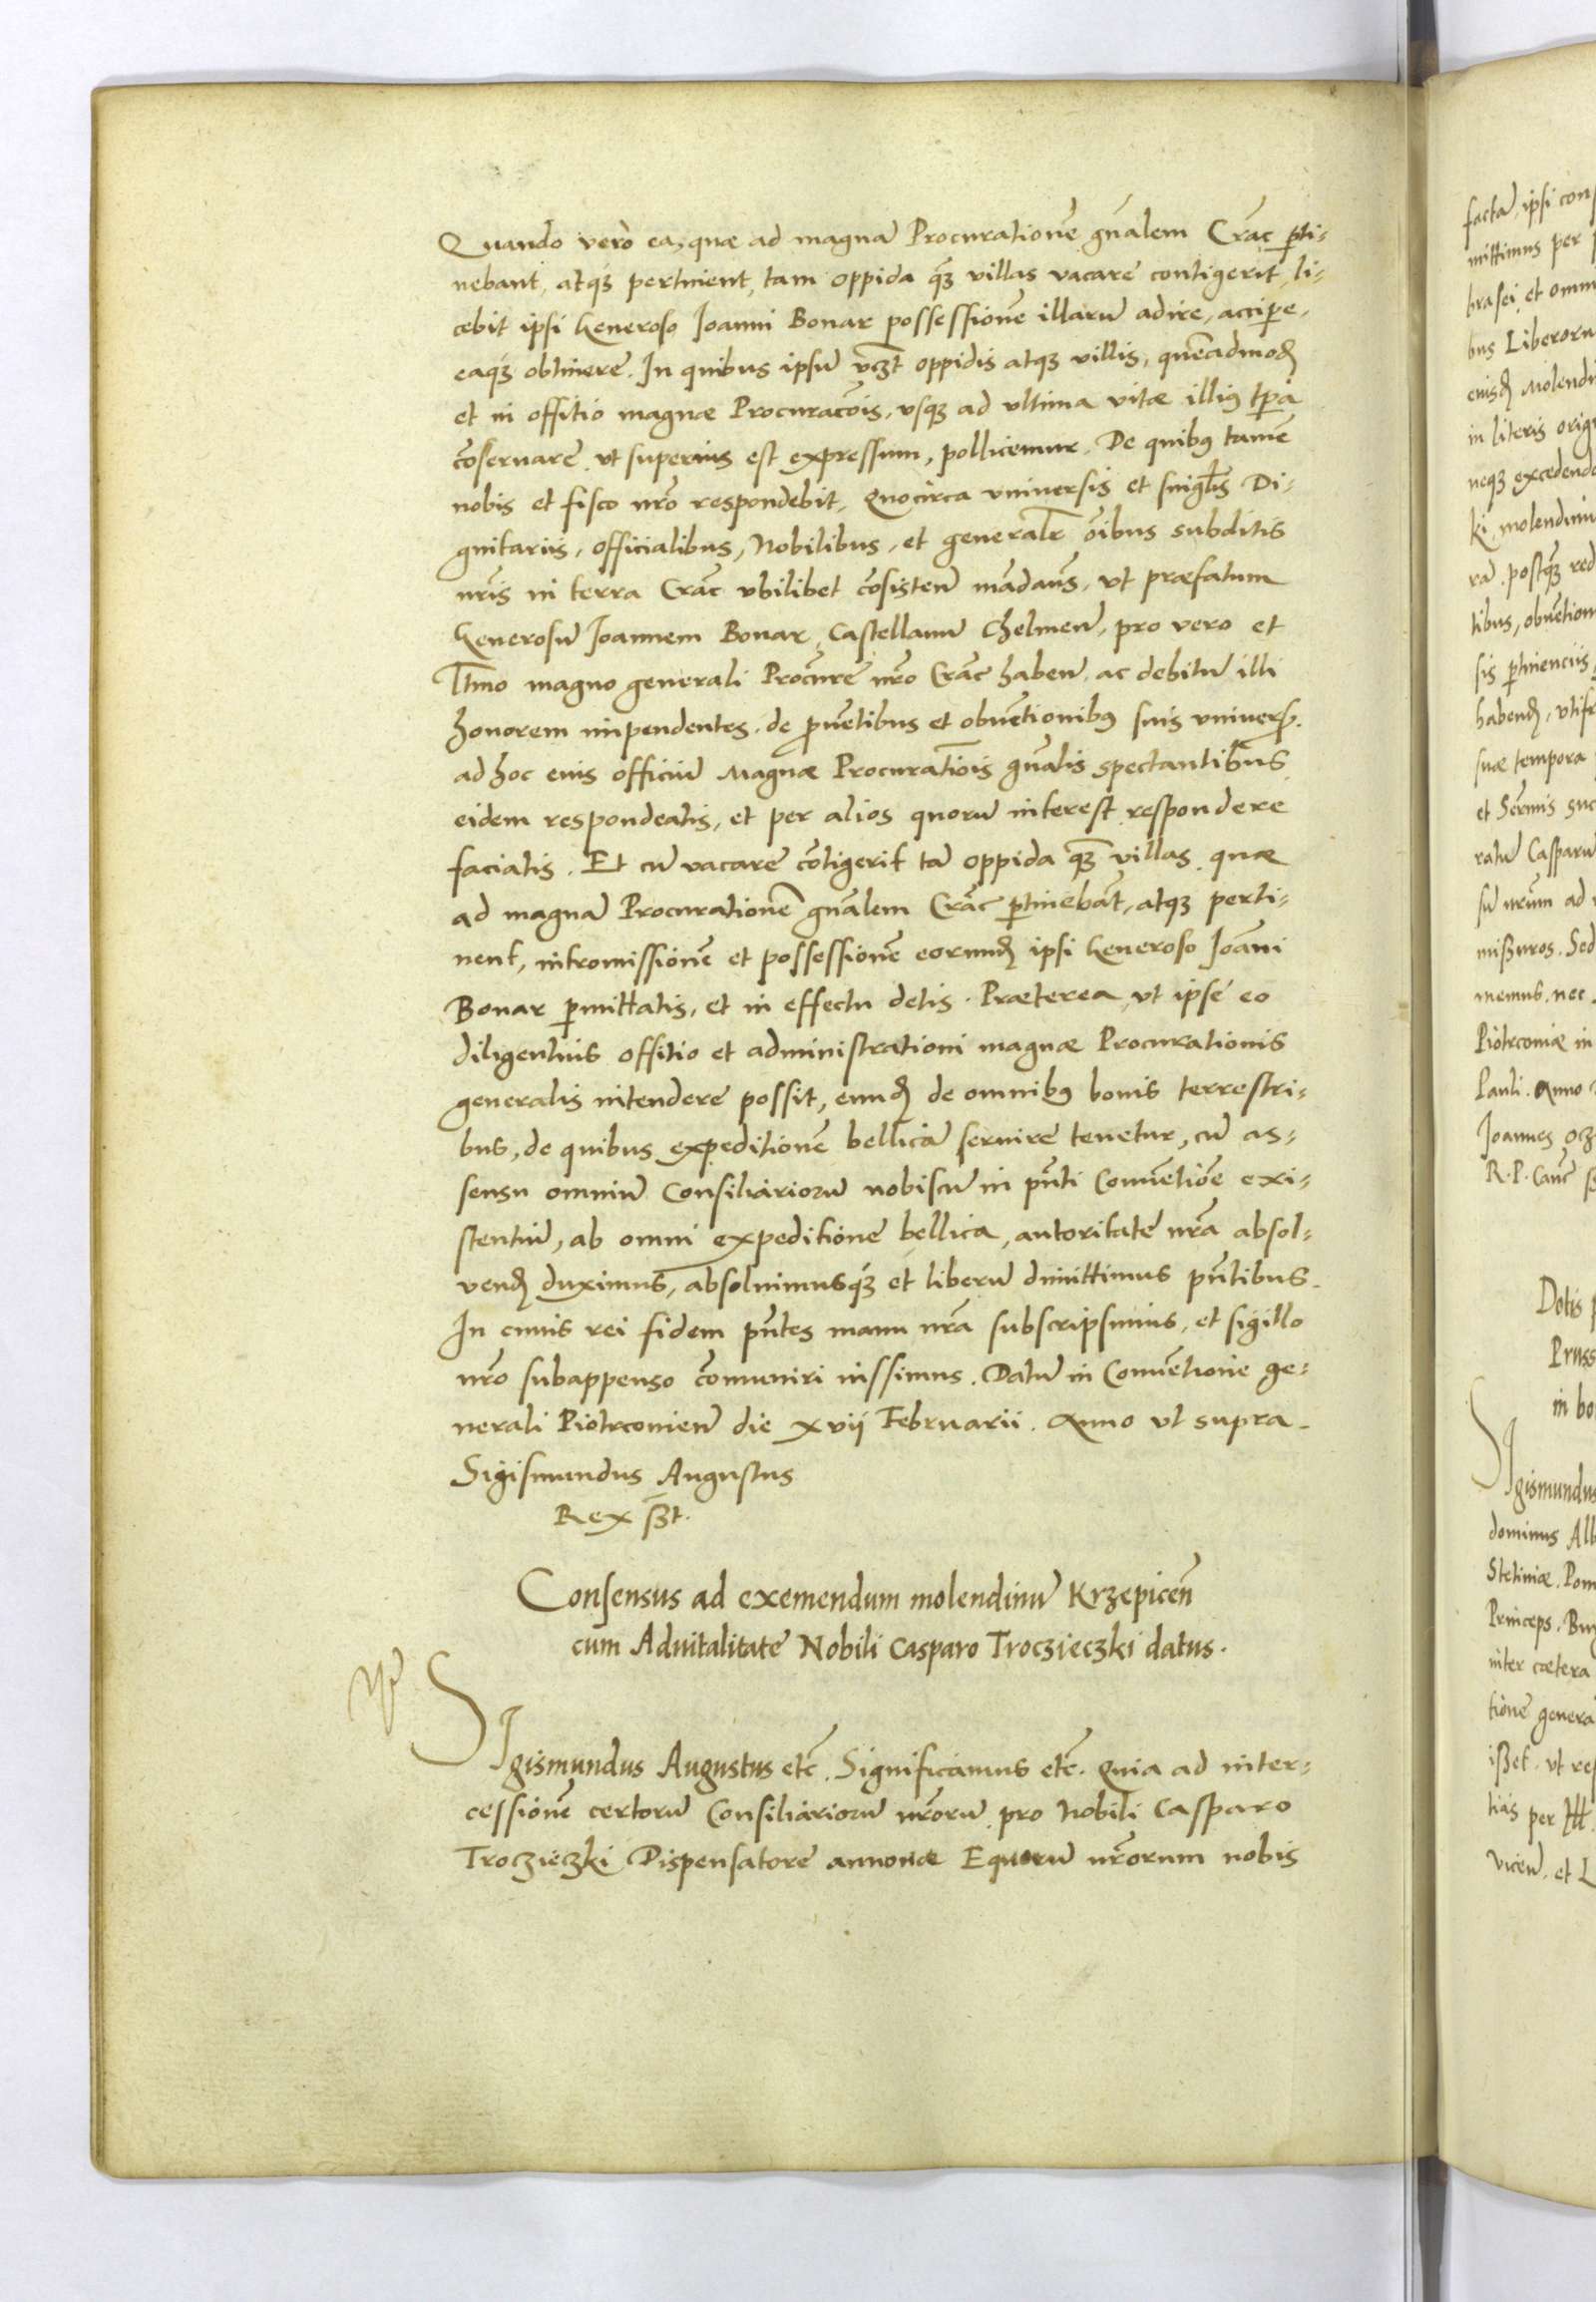 Quando vero ea, quæ ad magnā Procurationē gñalem Crac̃ ꝑti-
nebant, atqꝫ pertinent, tam oppida q̃ꝫ villas vacare contigerit, li-
cebit ipsi Generoso Joanni Bonar possessionē illarū adire, accipe-
eaqꝫ obtinere. In quibus ipsū vcꝫt oppidis atqꝫ villis, quēadmod
et in offitio magnæ Procuracōis, vsqꝫ ad vltima vitæ illiꝰ tp̄a
cōseruare, vt superius est expressum, pollicemur. De quibꝰ tamē
nobis et fisco nr̄o respondebit, Quocirca vniuersis et singlis Di-
gnitariis, officialibus, Nobilibus, et generalr̄ oībus subditis
nr̄is in terra Crac̃ vbilibet cōsisteñ mādam̄s, vt præfatum
Generosū Joannem Bonar, Castellanū Chelmeñ, pro vero et
ltmo magno generali Procur̄e nr̄o Crac̃ habeñ, ac debitū illi
honorem impendentes, de ꝓuētibus et obuētionibꝰ suis vniuers.
ad hoc eius officiū Magnæ Procuratiōis gñalis spectantibus
eidem respondeatis, et per alios quorū interest respondere
faciatis. Et cū vacare cōtigerit tā oppida q̃ꝫ villas, quæ
ad magnā Procurationē gñalem Crac̃ ꝑtinebāt, atqꝫ perti-
nent, intromissionē et possessionē eorund ipsi Generoso Joāni
Bonar ꝑmittatis, et in effectu detis. Præterea, vt ipse eo
diligentius offitio et administrationi magnæ Procurationis
generalis intendere possit, eund de omnibꝰ bonis terrestri-
bus, de quibus expeditionē bellicā seruire tenetur, cū as-
sensu omniū Consiliariorū nobiscū in pñti Conuētiōe exi-
stentiū, ab omni expeditione bellica, autoritate nr̄a absol-
uend duximus, absoluimusqꝫ et liberū dimittimus pñtibus.
In cuius rei fidem pñtes manu nr̄a subscripsimus, et sigillo
nr̄o subappenso cōmuniri iussimus. Datū in Conuētione ge-
nerali Piotrconieñ die xvij Februarii. Anno vt supra.
Sigismundus Augustus
Rex sꝫt.
Consensus ad exemendum molendinū Krzepiceñ
cum Aduitalitate Nobili Casparo Troczieczki datus.
SIgismundus Augustus etc̃. Significamus etc̃. Quia ad inter-
cessionē certorū Consiliariorū nr̄orū, pro Nobili Casparo
Troczieczki Dispensatore annonæ Equorū nr̄orum nobis
factā, ipsi con
mittimus per
brasei, et omn
bus Liberoru
eiusd Molendi
in literis orig
neqꝫ excedend
ki, molendinu
rā. postq̃ꝫ red
tibus, obuētion
sis ꝑtinenciis
habend, vtifr
suæ tempora
et Ser̄mis suc
ratū Casparū
sū nr̄um ad
missuros. Sed
memus, nec
Piotrconiæ in
Pauli. Anno
Joannes ocz
R. P. Canc̃ s
Dotis
Pruss
in bo
SIgismundus
dominus Alb
Stetiniæ. Pom
Princeps. Bur
inter cætera
tione genera
isset. vt res
tias per Ill
viceñ. et L